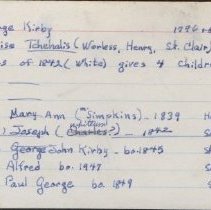 ge Kirby 1796
ise Tchehalis (Worless, Henry, St. Clair,
s of 1842 (White) gives 4 childre
Mary Ann (Simpkins) - 1839
) Joseph (Charles?) - 1842
George John Kirby - bo. 1845
Alfred bo. 1947
Paul George bo. 1849